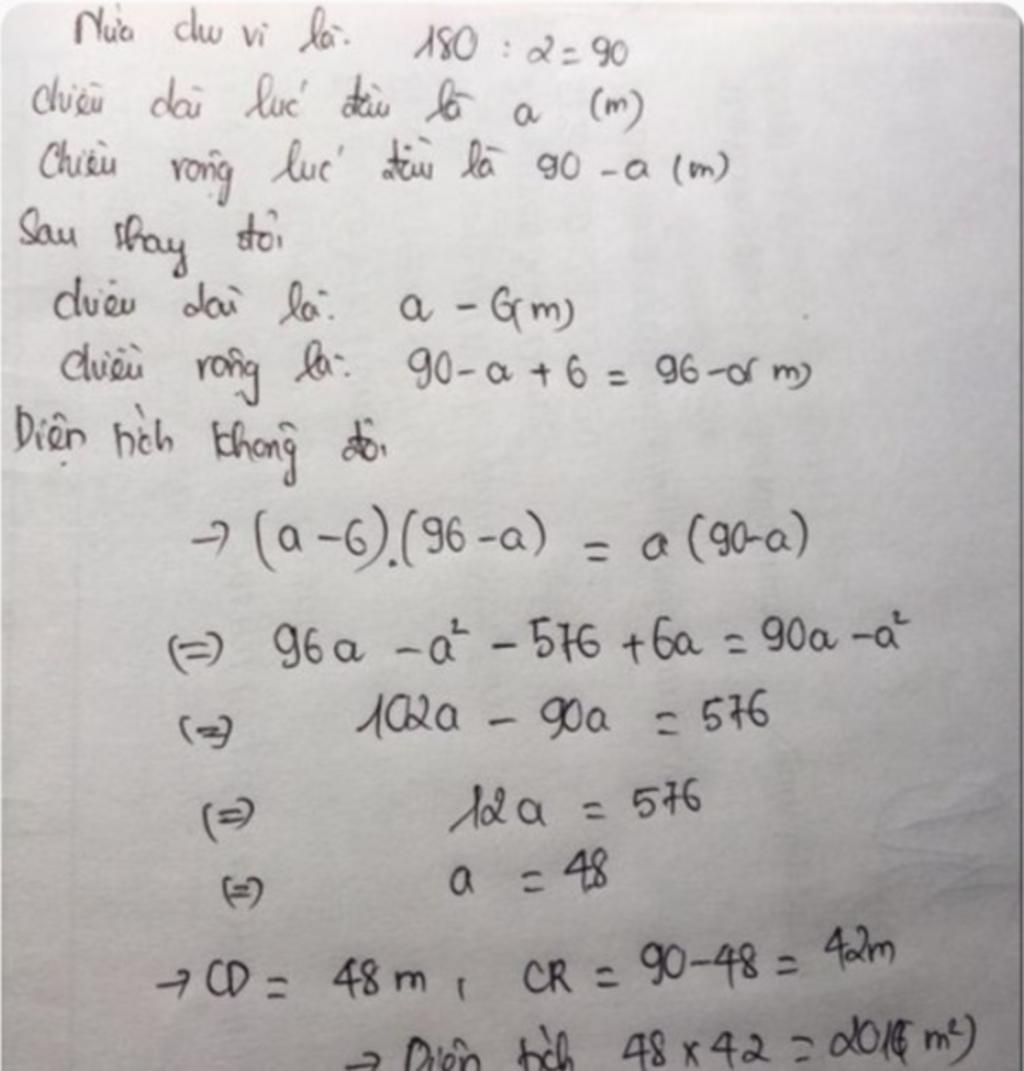 Nửa chu vi là: 180 : 2 = 90
Chiều dài lúc đầu là a (m)
Chiều rộng lúc đầu là 90 - a (m)
Sau thay đổi
chiều dài là: a - 6(m)
chiều rộng là: 90 - a + 6 = 96 - a(m)
Diện tích không đổi
→ (a - 6).(96 - a) = a (90 - a)
(=) 96a - a² - 576 + 6a = 90a - a²
(=) 102a - 90a = 576
(=) 12a = 576
(=) a = 48
→ CD = 48m, CR = 90 - 48 = 42m
→ Diện tích 48 x 42 = 2016 m²)